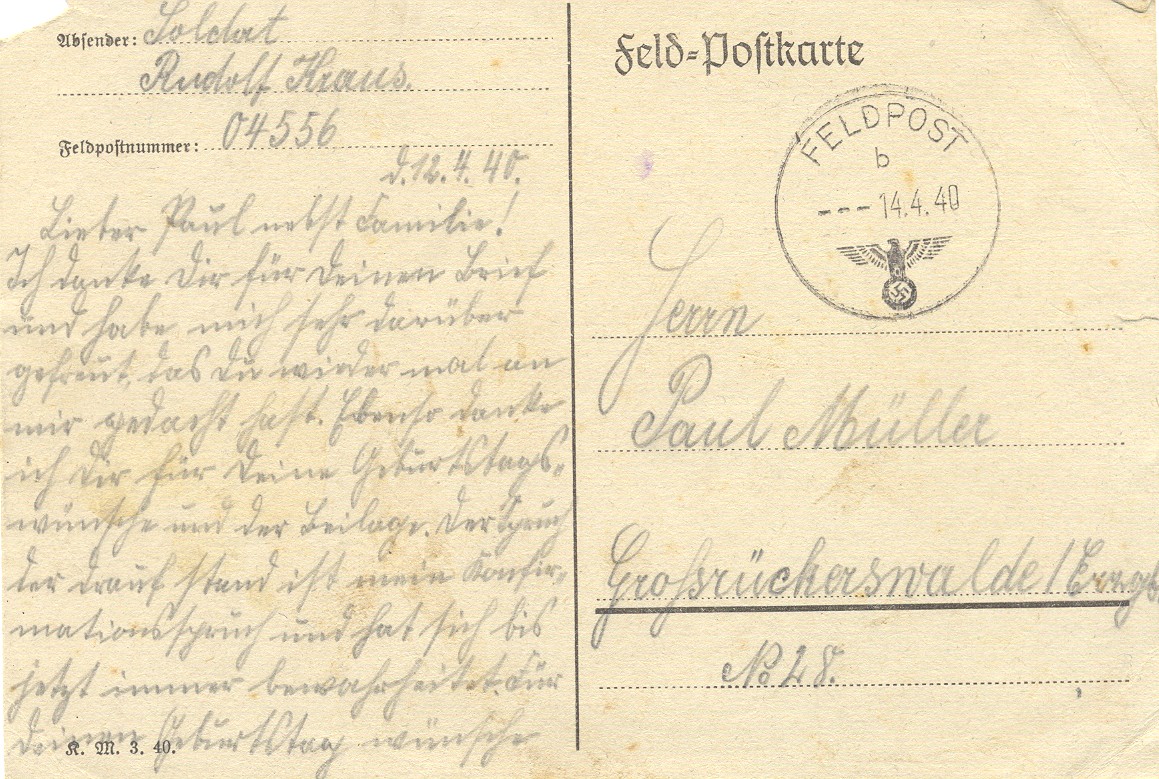 Absender: Soldat
Rudolf Kraus.
Feldpostnummer: 04556
d. 12.4.40.
Lieber Paul nebst Familie!
Ich danke Dir für Deinen Brief
und habe mich sehr darüber
gefreut, das Du wieder mal an
mir gedacht hast. Ebenso danke
ich Dir für Deine Geburtstags-
wünsche und der Beilage. Der Spruch
der drauf stand ist mein Konfir-
mationsspruch und hat sich bis
jetzt immer bewahrheitet. Für
Deinen Geburtstag wünsche
K. M. 3. 40.
Feld-Postkarte
FELDPOST
b
--- 14.4.40
Herrn
Paul Müller
Großrückerswalde / Erzgb.
No 28.